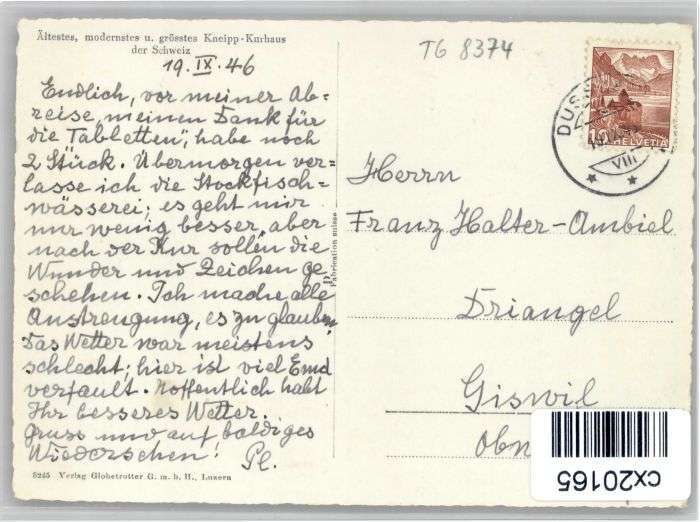 Ältestes, modernstes u. grösstes Kneipp-Kurhaus
der Schweiz
19. IX. 46
Endlich, vor meiner Ab=
reise, meinen Dank für
die Tabletten, habe noch
2 Stück. Übermorgen ver-
lasse ich die Stockfisch=
wässerei; es geht mir
nur wenig besser, aber
nach der Kur sollen die
Wunder und Zeichen ge
schehen. Ich mache alle
Anstrengung, es zu glauben.
Das Wetter war meistens
schlecht; hier ist viel Emd
verfault. Hoffentlich habt
Ihr besseres Wetter.
Gruss und auf baldiges
Wiedersehen! Pl.
5245 Verlag Globetrotter G. m. b. H., Luzern
Fabrication suisse
TG 8374
10 HELVETIA
DUSS
VIII
Herrn
Franz Halter-Ambiel
Driangel
Giswil
Obw
cx20165